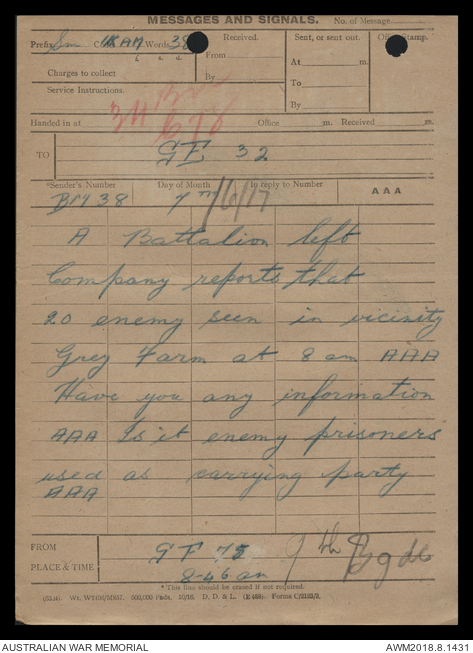 MESSAGES AND SIGNALS. No. of Message
Prefix Sm Code KAM Words 38 Received. Sent, or sent out. Office Stamp.
£ s. d. From
Charges to collect By At m.
Service Instructions. To
By
Handed in at Office m. Received m.
TO GE 32
*Sender's Number Day of Month In reply to Number AAA
BM 38 7th /6/17
A Battalion left
Company reports that
20 enemy seen in vicinity
Grey Farm at 8 am AAA
Have you any information
AAA Is it enemy prisoners
used as carrying party
AAA
FROM GF 75 9th Bgde
PLACE & TIME 8-46 am
*This line should be erased if not required.
500,000 Pads. 10/16. D. D. & L.
AUSTRALIAN WAR MEMORIAL AWM2018.8.1431